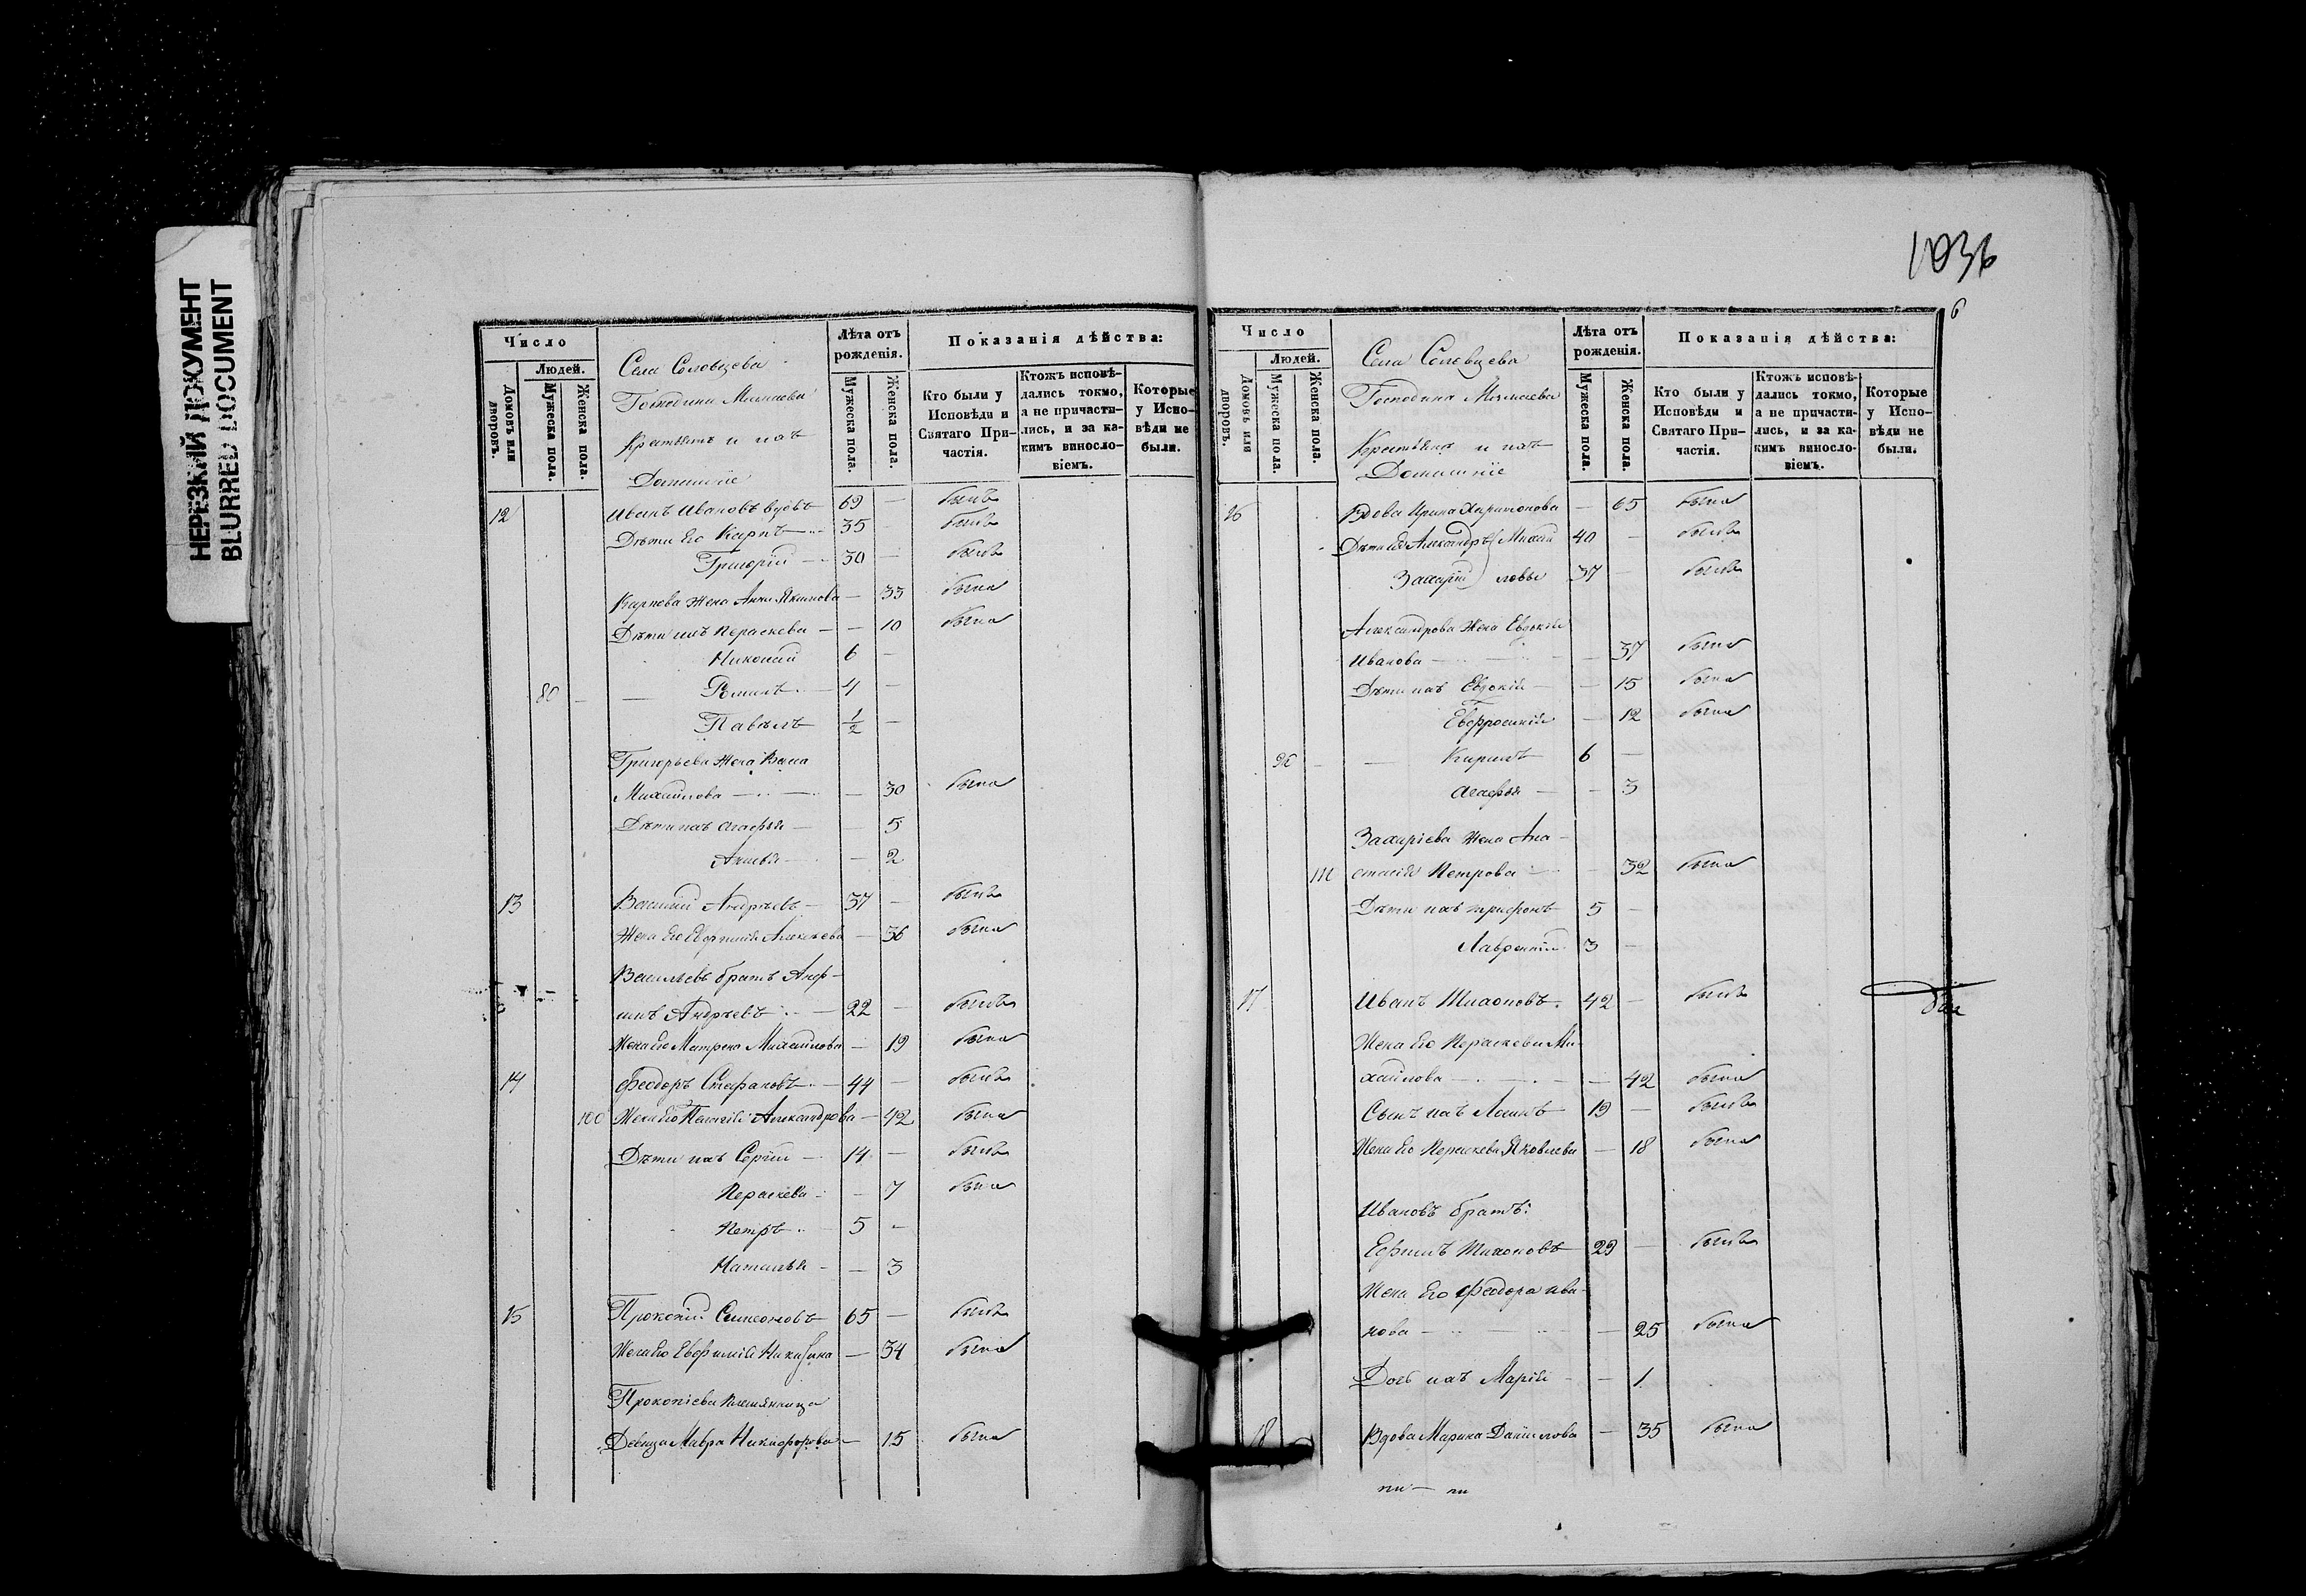 НЕРЕЗКИЙ ДОКУМЕНТ
BLURRED DOCUMENT
Число
Людей.
Домовъ или дворовъ.
Мужеска пола.
Женска пола.
Села Соловцева
Господина
Крестьяне и ихъ
Домашніе
Лѣта отъ рожденія.
Мужеска пола.
Женска пола.
Показанія дѣйства:
Кто были у Исповѣди и Святаго Причастія.
Ктожъ исповѣдались токмо, а не причастились, и за какимъ винословіемъ.
Которые у Исповѣди не были.
12 Иванъ Ивановъ вдовъ 69 — былъ
Дѣти его Карпъ 35 былъ
Григорій — 30 — былъ
Карпова жена Анна Якимова — 33 была
Дѣти ихъ Параскева — — 10 была
Николай 6 —
80 — — 4 —
Павелъ 1/2 —
Григорьева жена
Михайлова — — 30 была
Дѣти ихъ Агафья — — 5
— 2
13 Василій Андреевъ — 37 — былъ
Жена его Алексѣева — 36 была
Васильевъ братъ
Андреевъ — 22 — былъ
Жена его Матрена Михайлова — 19 была
14 Феодоръ Стефановъ — 44 — былъ
100 Жена его Пелагія Александрова — 42 была
Дѣти ихъ Сергій — 14 — былъ
Параскева — — 7 была
Петръ — 5 —
Наталья — — 3
15 Прокопій Симеоновъ 65 — былъ
Жена его Евфимія — 34 была
Прокопіева племянница
Девица Мавра Никифорова — 15 была
1036
6
Число
Людей.
Домовъ или дворовъ.
Мужеска пола.
Женска пола.
Села Соловцева
Господина
Крестьяне и ихъ
Домашніе
Лѣта отъ рожденія.
Мужеска пола.
Женска пола.
Показанія дѣйства:
Кто были у Исповѣди и Святаго Причастія.
Ктожъ исповѣдались токмо, а не причастились, и за какимъ винословіемъ.
Которые у Исповѣди не были.
16 Вдова Ирина Харитонова — 65 была
Дѣти ея Александръ Михай 40 — былъ
Захарій ловы 37 — былъ
Александрова жена Евдокія
Иванова — — — 37 была
Дѣти ихъ Евдокія — — 15 была
Евфросинія — 12 была
90 — — Кирилъ 6 —
Агафья — — 3
Захаріева жена Ана-
110 стасія Петрова — — 32 была
Дѣти ихъ Трифонъ 5 —
Лаврентій 3 —
17 Иванъ Тихоновъ. 42 — былъ
Жена его Параскева Ми-
хайлова — — — 42 была
Сынъ ихъ 19 — былъ
Жена его Параскева Яковлева — 18 была
Ивановъ братъ:
Ефимъ Тихоновъ 29 — былъ
Жена его Феодора Ива-
нова — — — 25 была
Дочь ихъ Марія — — 1
18 Вдова Марина Данилова — 35 была